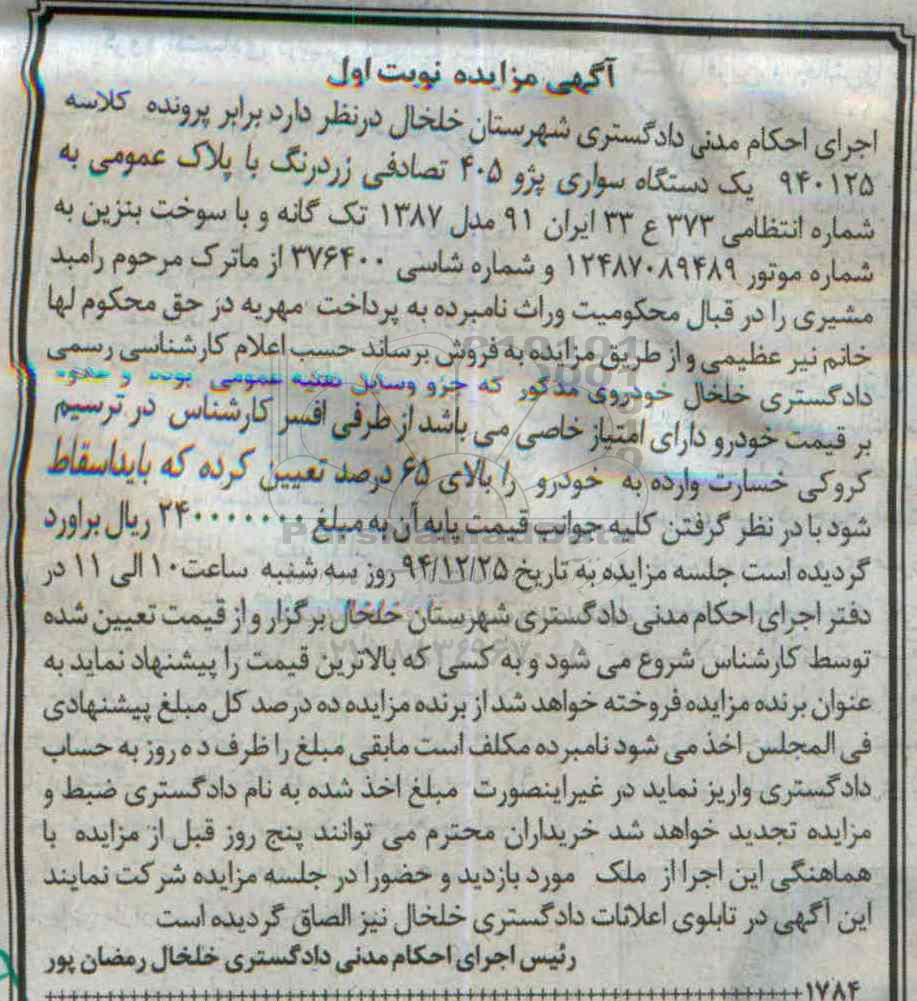 آگهی مزایده نوبت اول
اجرای احکام مدنی دادگستری شهرستان خلخال درنظر دارد برابر پرونده کلاسه
۹۴۰۱۲۵ یک دستگاه سواری پژو ۴۰۵ تصادفی زردرنگ با پلاک عمومی به
شماره انتظامی ۳۷۳ ع ۳۳ ایران ۹۱ مدل ۱۳۸۷ تک گانه و با سوخت بنزین به
شماره موتور ۱۲۴۸۷۰۸۹۴۸۹ و شماره شاسی ۳۷۶۴۰۰ از ماترک مرحوم رامبد
مشیری را در قبال محکومیت وراث نامبرده به پرداخت مهریه در حق محکوم لها
خانم نیر عظیمی و از طریق مزایده به فروش برساند حسب اعلام کارشناسی رسمی
دادگستری خلخال خودروی مذکور که جزو وسایل نقلیه عمومی بوده و
بر قیمت خودرو دارای امتیاز خاصی می باشد از طرفی افسر کارشناس در ترسیم
کروکی خسارت وارده به خودرو را بالای ۶۵ درصد تعیین کرده که بایداسقاط
شود با در نظر گرفتن کلیه جوانب قیمت پایه آن به مبلغ ۲۴۰۰۰۰۰۰۰ ریال براورد
گردیده است جلسه مزایده به تاریخ ۹۴/۱۲/۲۵ روز سه شنبه ساعت۱۰ الی ۱۱ در
دفتر اجرای احکام مدنی دادگستری شهرستان خلخال برگزار و از قیمت تعیین شده
توسط کارشناس شروع می شود و به کسی که بالاترین قیمت را پیشنهاد نماید به
عنوان برنده مزایده فروخته خواهد شد از برنده مزایده ده درصد کل مبلغ پیشنهادی
فی المجلس اخذ می شود نامبرده مکلف است مابقی مبلغ را ظرف ده روز به حساب
دادگستری واریز نماید در غیراینصورت مبلغ اخذ شده به نام دادگستری ضبط و
مزایده تجدید خواهد شد خریداران محترم می توانند پنج روز قبل از مزایده با
هماهنگی این اجرا از ملک مورد بازدید و حضورا در جلسه مزایده شرکت نمایند
این آگهی در تابلوی اعلانات دادگستری خلخال نیز الصاق گردیده است
رئیس اجرای احکام مدنی دادگستری خلخال رمضان پور
۱۷۸۴